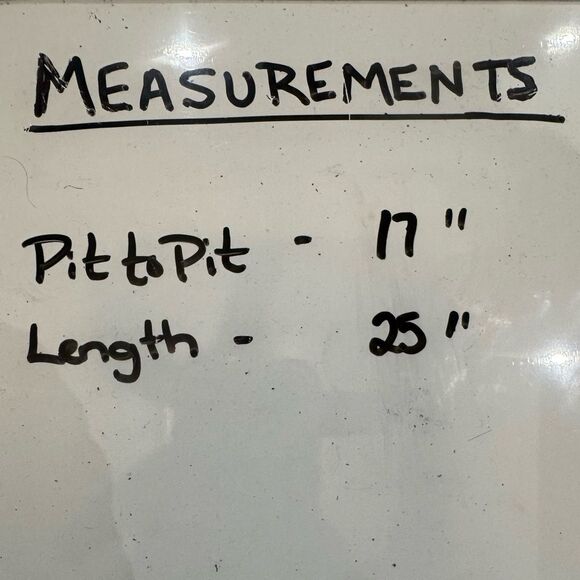 MEASUREMENTS
Pit to Pit - 17"
Length - 25"